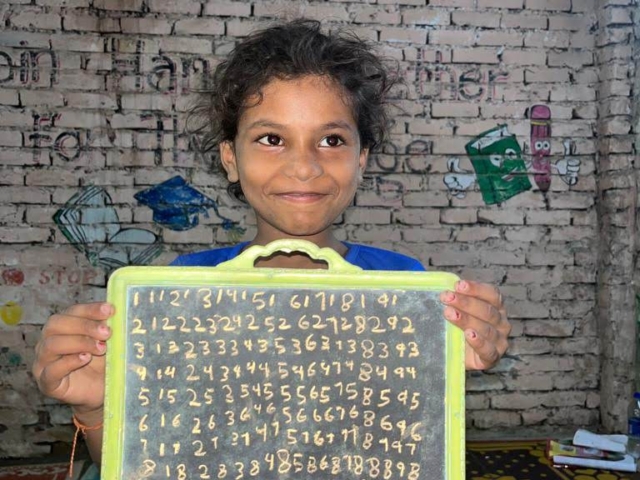 for
STOP
1 11 21 31 41 51 61 71 81 91
2 12 22 32 42 52 62 72 82 92
3 13 23 33 43 53 63 73 83 93
4 14 24 34 44 54 64 74 84 94
5 15 25 35 45 55 65 75 85 95
6 16 26 36 46 56 66 76 86 96
7 17 27 37 47 57 67 77 87 97
8 18 28 38 48 58 68 78 88 98